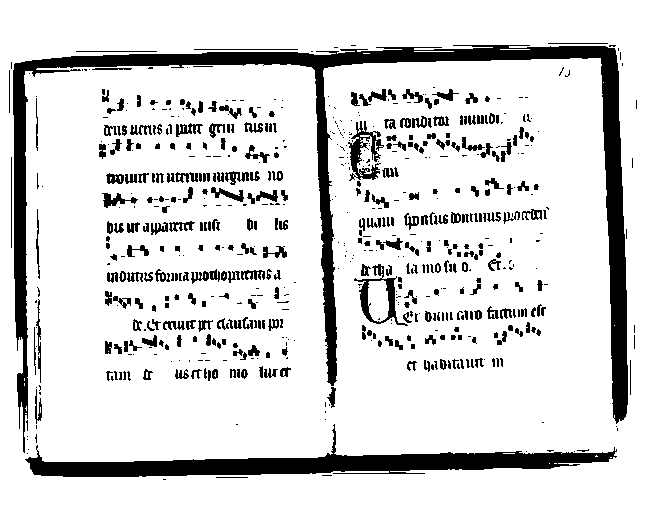 deus uerus a patre geni tus in
trouiit in uterum uirginis no
bis ut appareret uisi bi lis
indutus forma prothoparentis a
de. Et exiuit per clausam por
tam de us et ho mo lux et
15
ui ta conditor mundi.
an
quam sponsus dominus proceden
de tha la mo su o. Et.
Et dum caro factum est
et habitauit in